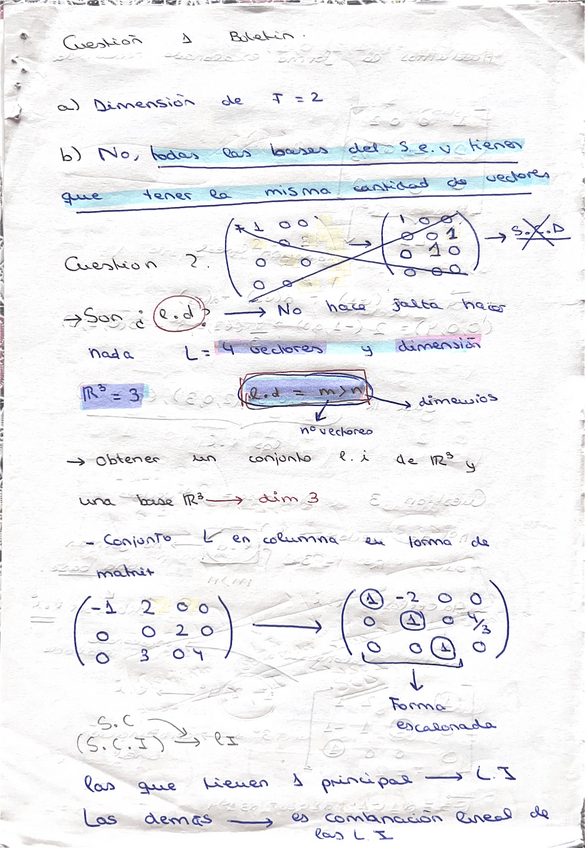 Cuestión 1 Boletín.
a) Dimensión de T = 2
b) No, todas las bases del S.e.v tienen
que tener la misma cantidad de vectores
1 0 0 1 0 0
0 0 0 1
Cuestion 2. 0 0 → 0 1 0 → S.C.D
0 0 0 0 0
→ Son ¿ l.d? → No hace falta hacer
nada L = 4 vectores y dimensión
ℝ³ = 3 l.d = m > n → dimensios
nº vectores
→ Obtener un conjunto l.i de ℝ³ y
una base ℝ³ → dim 3
- Conjunto L en columna en forma de
matriz
-1 2 0 0 1 -2 0 0
0 0 2 0 → 0 1 0 4/3
0 3 0 4 0 0 1 0
Forma
escalonada
S.C
(S.C.I) → lI
las que tienen 1 principal → L.I
Las demás → es combinación lineal de
las L.I